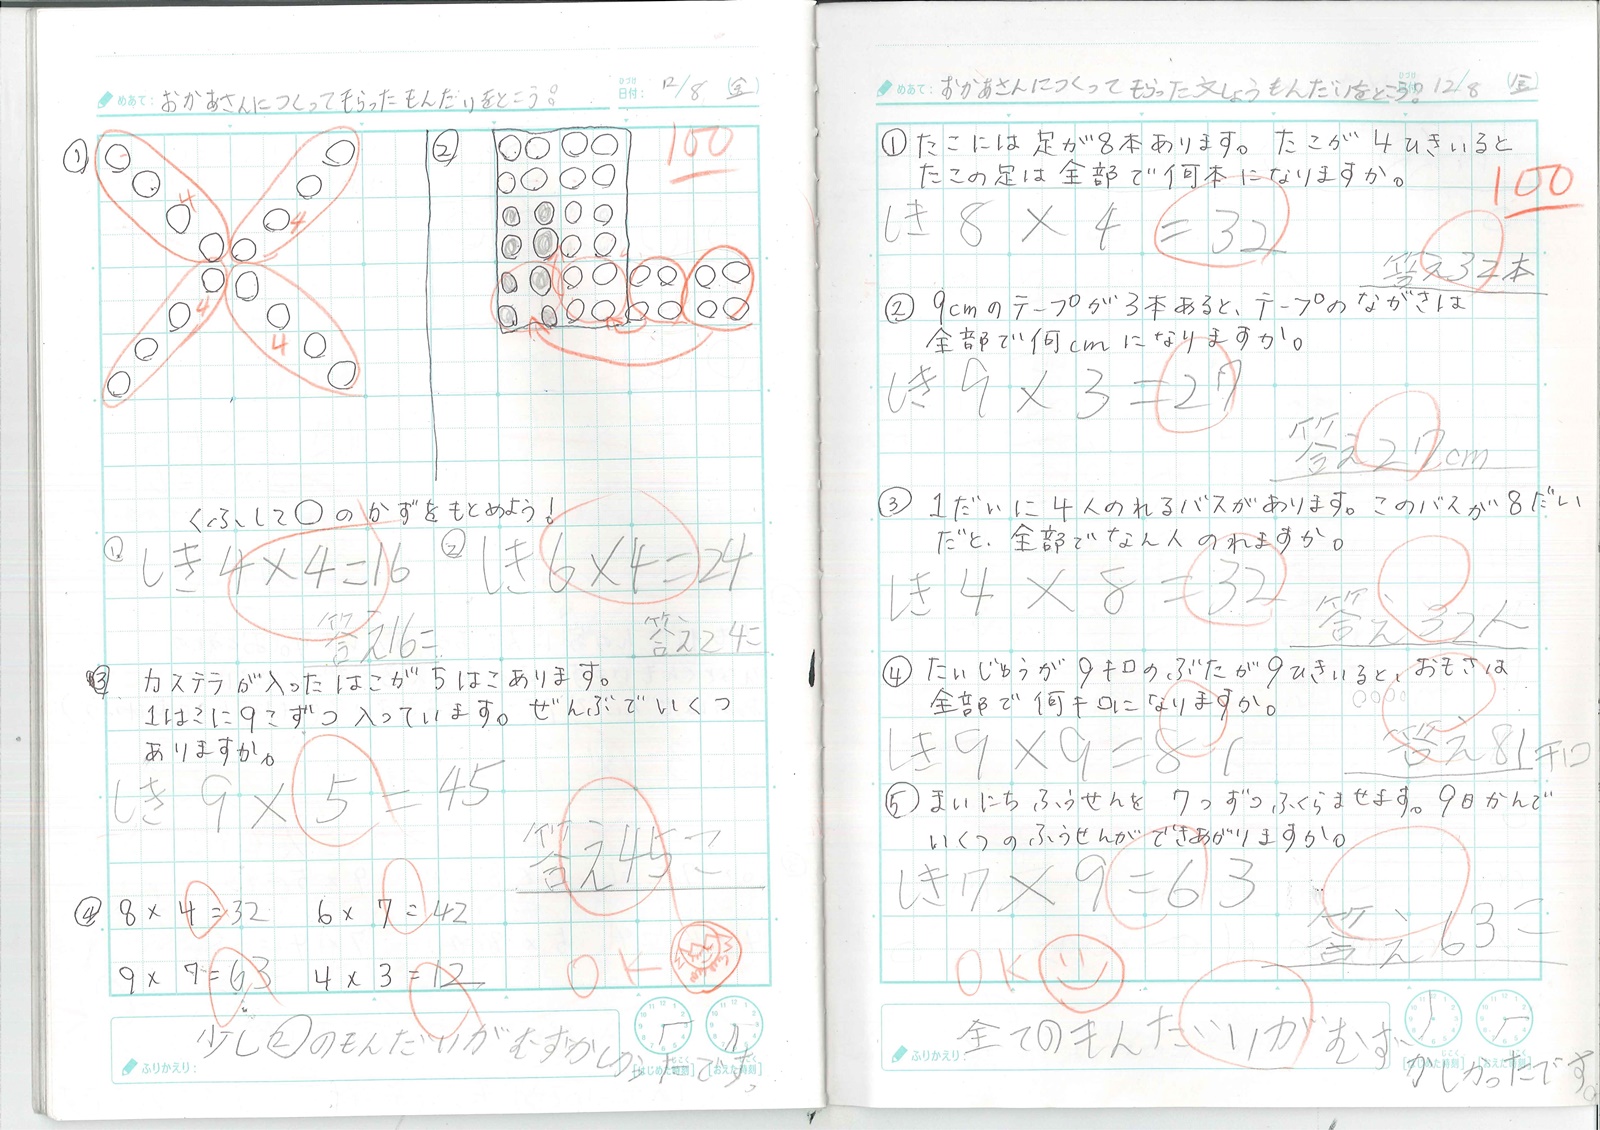 めあて: おかあさんにつくってもらったもんだいをとこう!
日付: 12/8 (金)
①
②
100
4
4
4
4
くふうして○のかずをもとめよう!
① しき 4×4=16
答え16こ
② しき 6×4=24
答え24こ
③ カステラが入ったはこが5はこあります。
1はこに9こずつ入っています。ぜんぶでいくつ
ありますか。
しき 9×5=45
答え45こ
④ 8×4=32 6×7=42
9×7=63 4×3=12
OK
ふりかえり: 少し②のもんだいがむずかしかったです。
[はじめた時刻] [おえた時刻]
めあて: おかあさんにつくってもらった文しょうもんだいをとこう! 12/8 (金)
① たこには足が8本あります。たこが4ひきいると
たこの足は全部で何本になりますか。
100
しき 8×4=32
答え32本
② 9cmのテープが3本あると、テープのながさは
全部で何cmになりますか。
しき 9×3=27
答え27cm
③ 1だいに4人のれるバスがあります。このバスが8だい
だと、全部でなん人のれますか。
しき 4×8=32
答え32人
④ たいじゅうが9キロのぶたが9ひきいると、おもさは
全部で何キロになりますか。
しき 9×9=81
答え81キロ
⑤ まいにちふうせんを7つずつふくらませます。9日かんで
いくつのふうせんができあがりますか。
しき 7×9=63
答え63こ
OK
ふりかえり: 全てのもんだいがむずかしかったです。
[はじめた時刻] [おえた時刻]